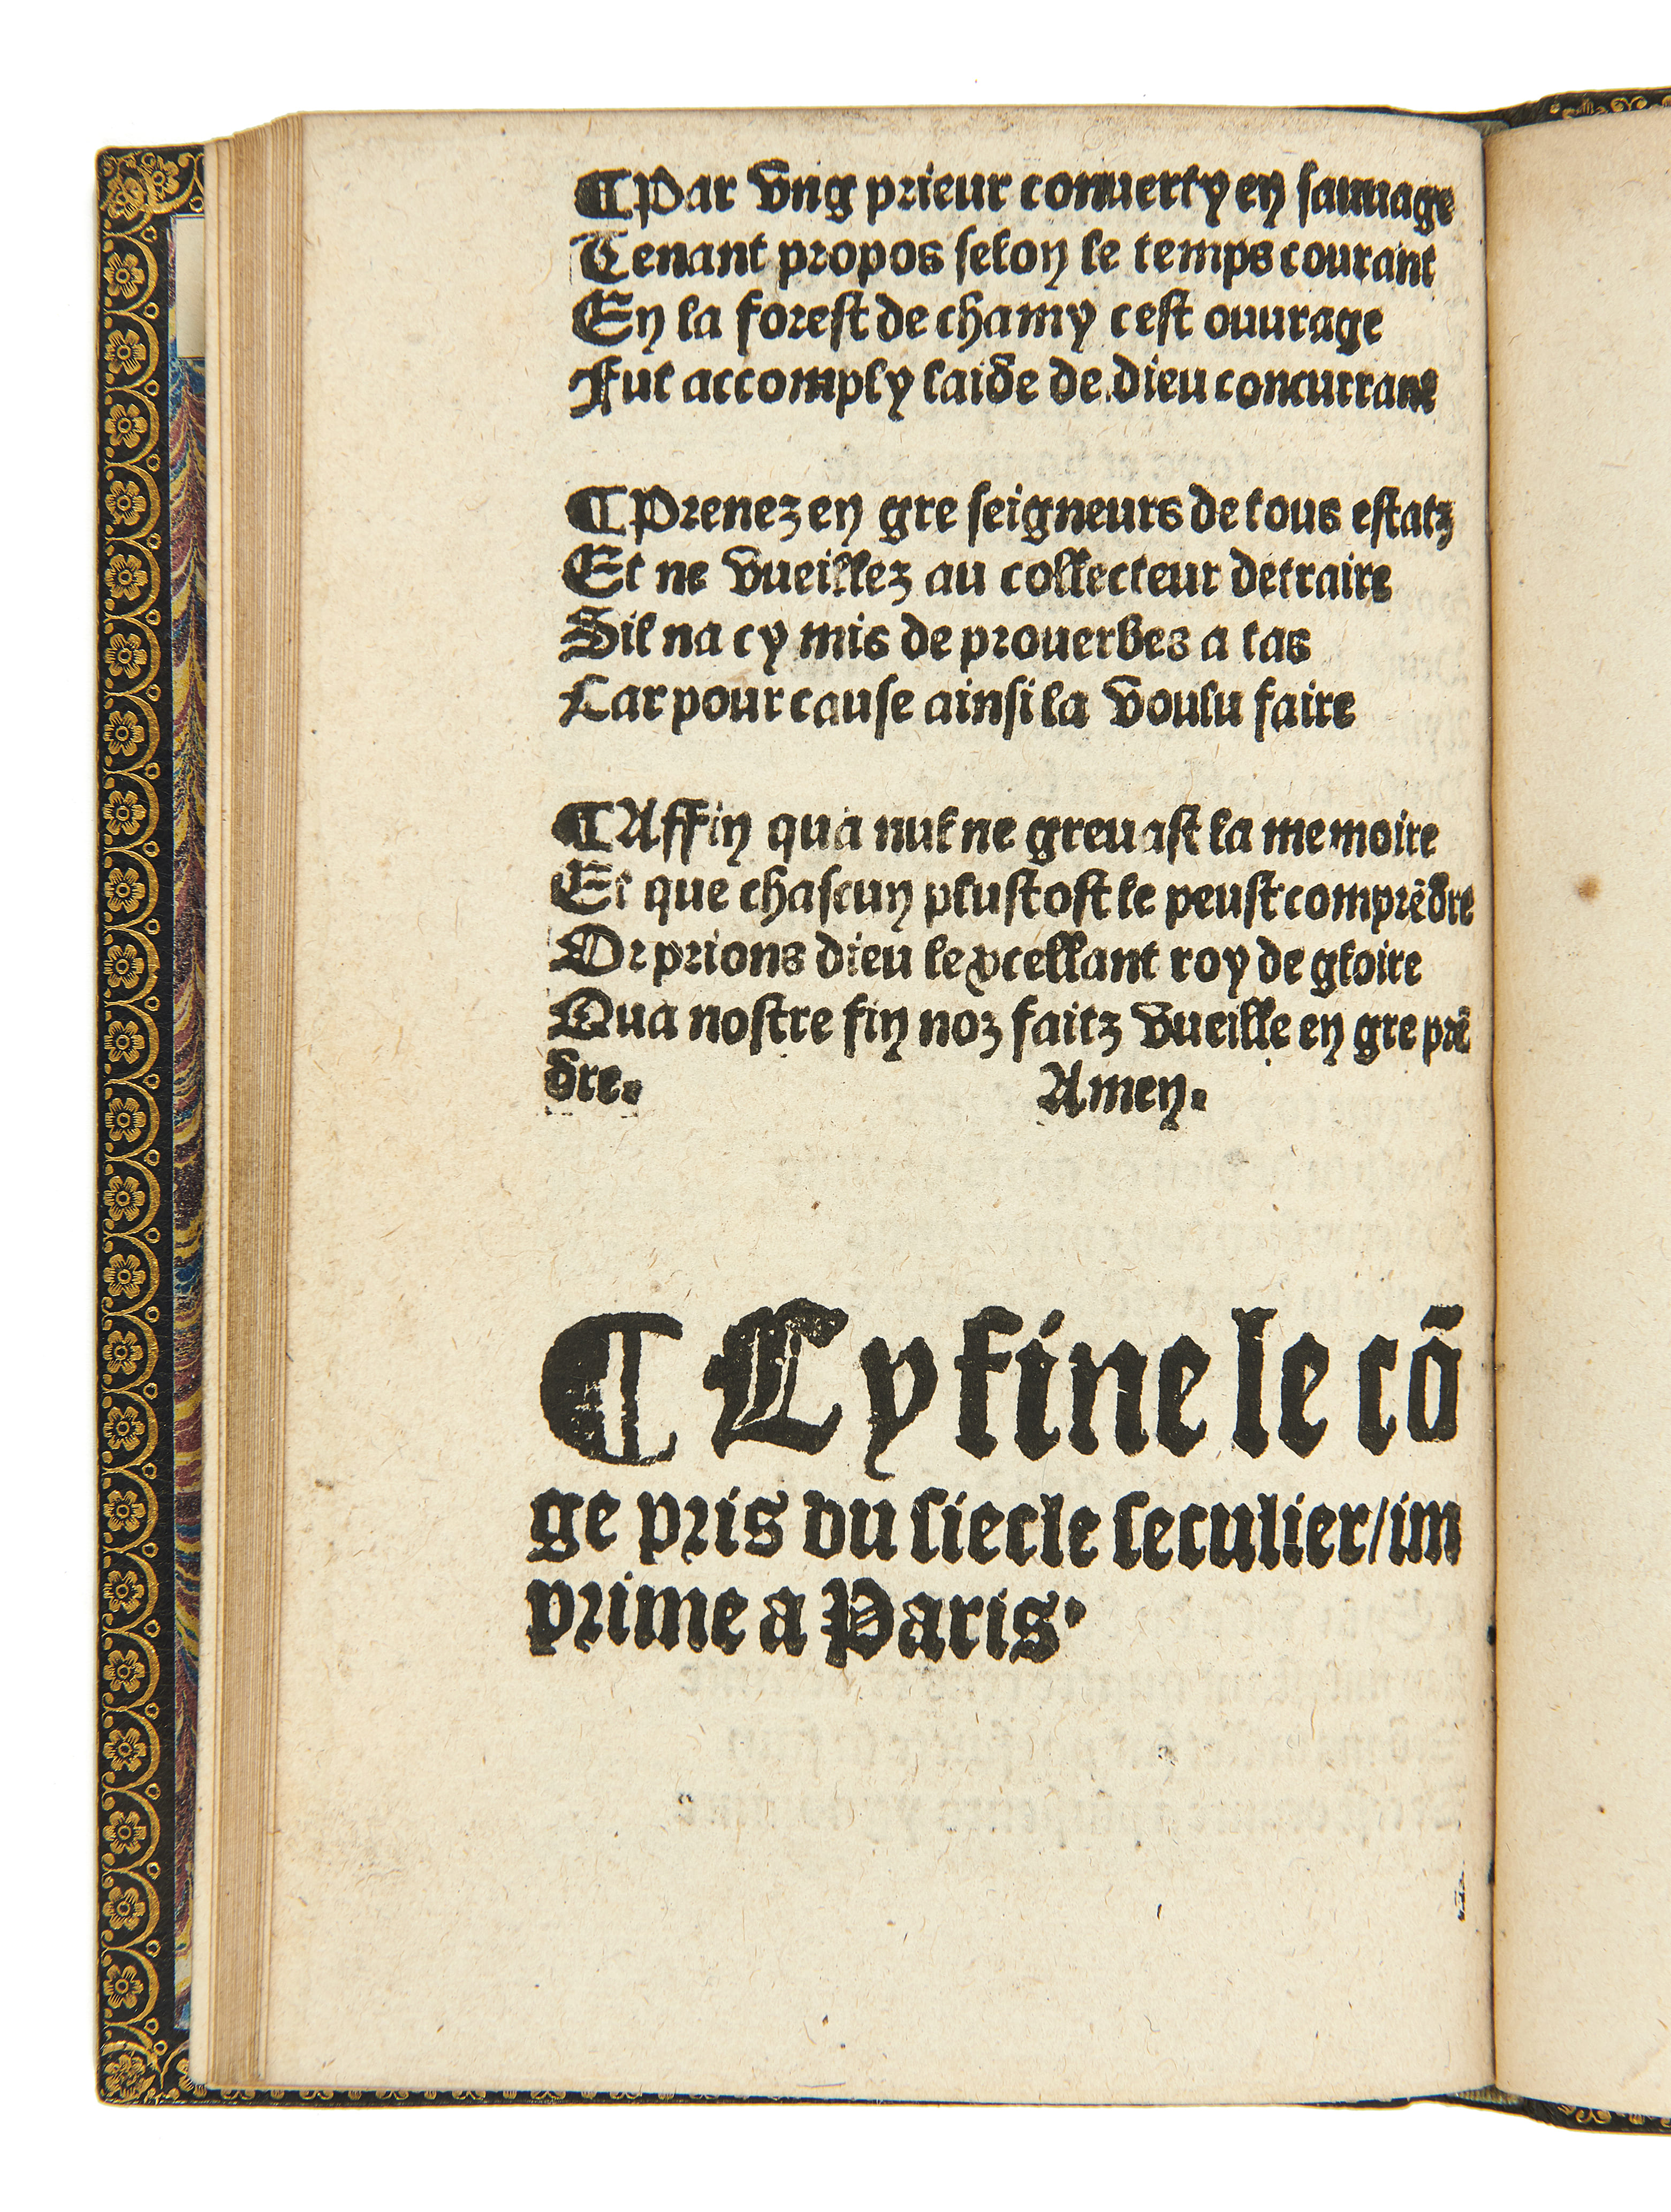 ¶ Par vng prieur conuerty en sauuage
Tenant propos selon le temps courant
En la forest de chamy cest ouurage
Fut accomply laide de dieu concurrant
¶ Prenez en gre seigneurs de tous estatz
Et ne vueillez au collecteur detraire
Sil na cy mis de prouerbes a tas
Car pour cause ainsi la voulu faire
¶ Affin qua nul ne greuast la memoire
Et que chascun plustost le peust comprẽdre
Or prions dieu lexcellant roy de gloire
Qua nostre fin noz faitz vueille en gre prẽ
dre. Amen.
¶ Cy fine le cõ
ge pris du siecle seculier/im
prime a Paris.